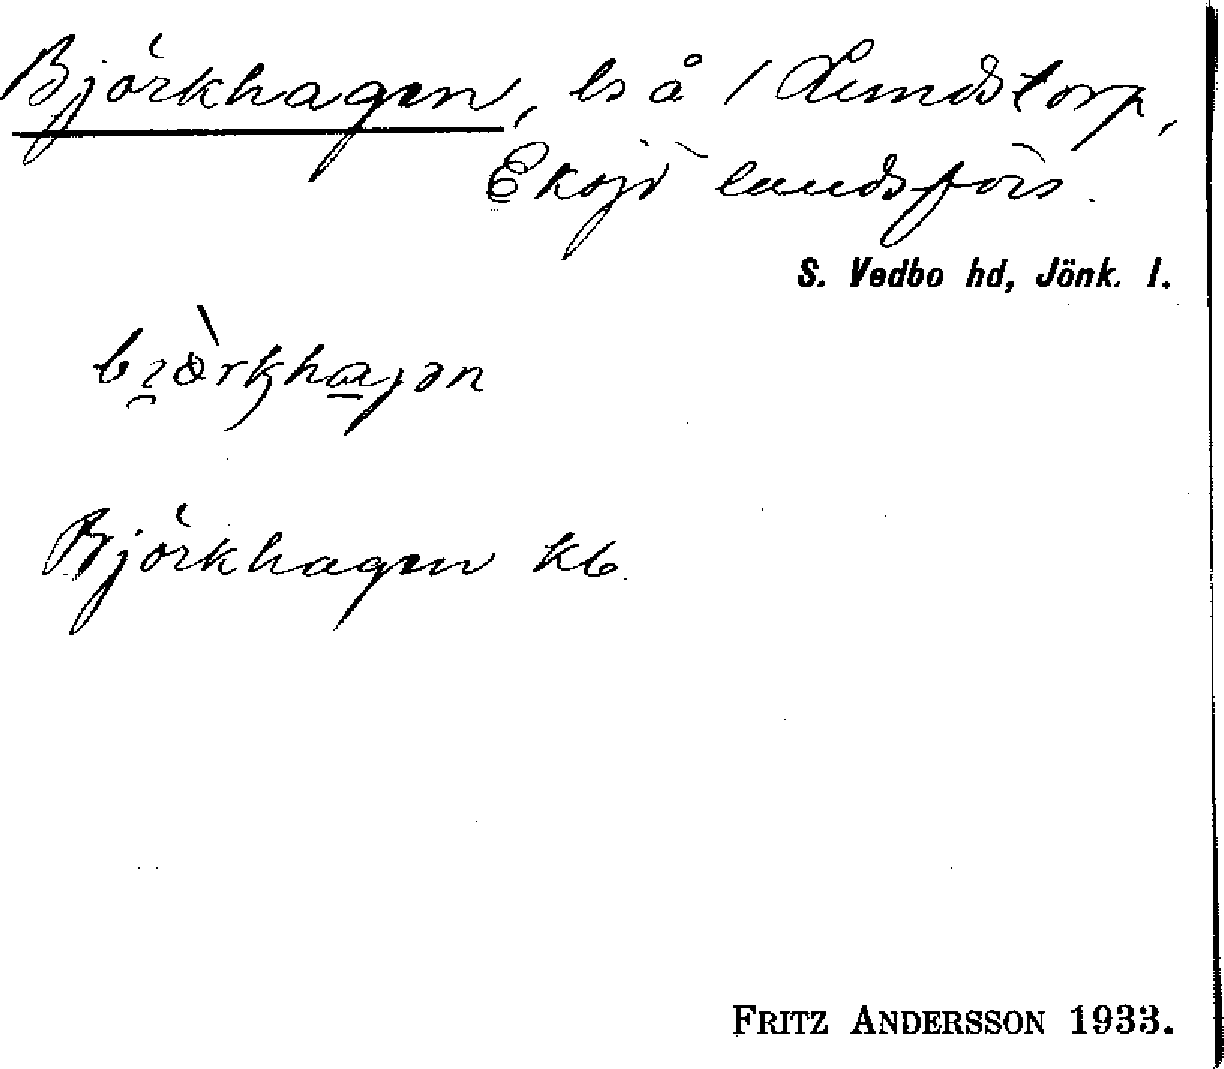 Björkhagen, ls å 1 Lundstorp,
Eksjö landsförs.
S. Vedbo hd, Jönk. l.
Björkhagen kb.
FRITZ ANDERSSON 1933.